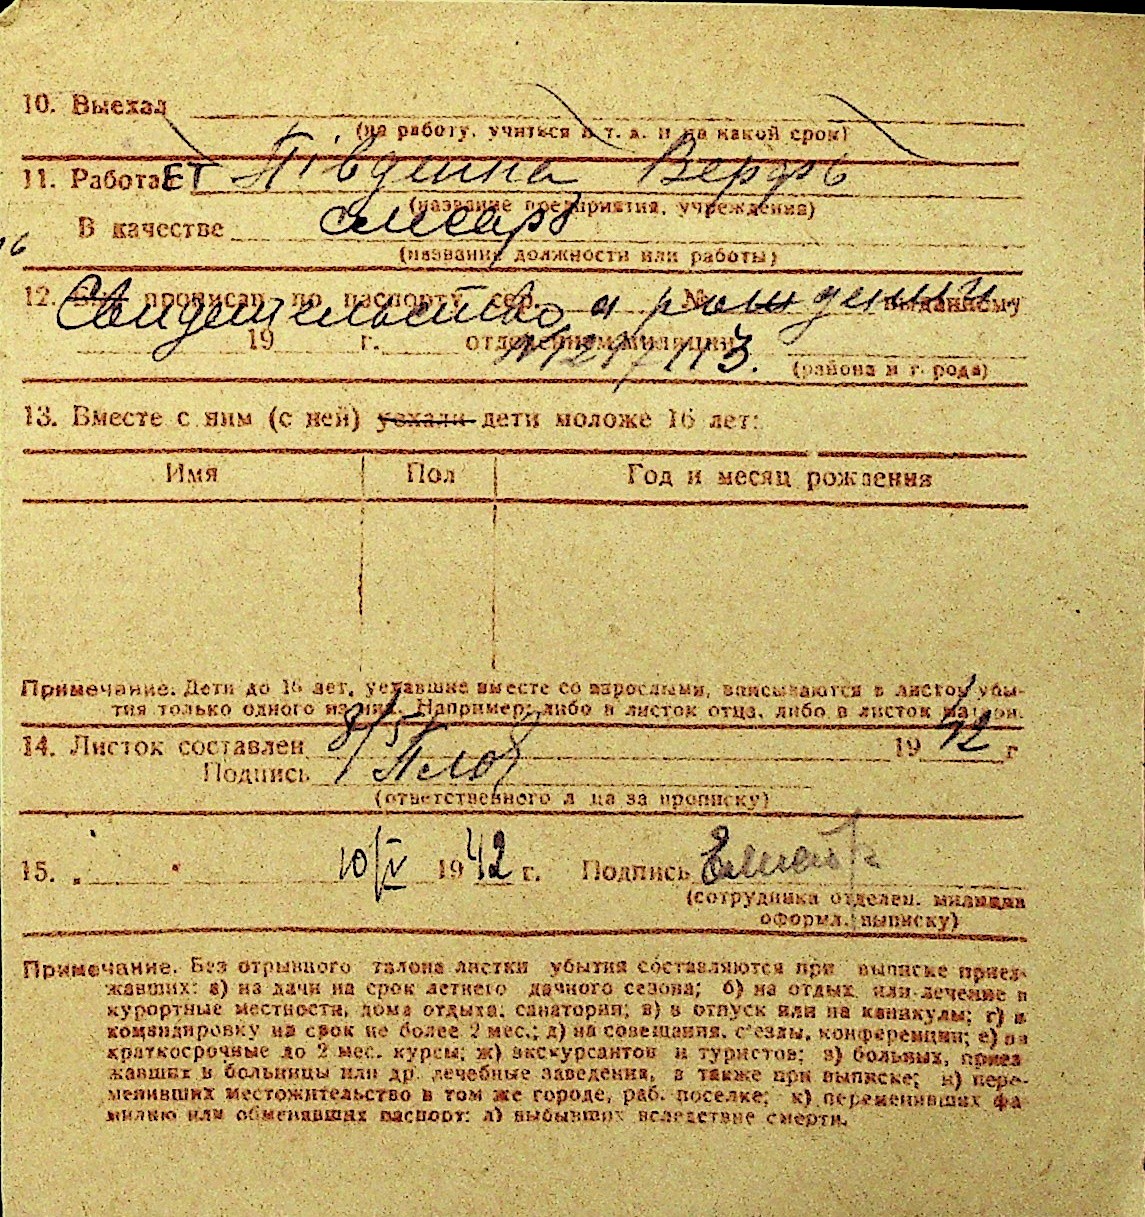 10. Выехал
(на работу, учиться и т. д. и на какой срок)
11. РаботаЕТ Південна Верфь
(название предприятия, учреждения)
В качестве слесарь
(название должности или работы)
12. прописан по паспорту сер. № выданному
Свидетельство о рождении
19 г. отделением милиции
(района и города)
13. Вместе с ним (с ней) уехали дети моложе 16 лет:
Имя Пол Год и месяц рождения
Примечание. Дети до 16 лет, уехавшие вместе со взрослыми, вписываются в листок убы-
тия только одного из них. Например: либо в листок отца, либо в листок матери.
14. Листок составлен 8/5 1942 г
Подпись
(ответственного лица за прописку)
15. 10/V 1942 г. Подпись
(сотрудника отделен. милиции
оформл. выписку)
Примечание. Без отрывного талона листки убытия составляются при выписке приез-
жавших: а) на дачи на срок летнего дачного сезона; б) на отдых или лечение в
курортные местности, дома отдыха, санатории; в) в отпуск или на каникулы; г) в
командировку на срок не более 2 мес.; д) на совещания, съезды, конференции; е) на
краткосрочные до 2 мес. курсы; ж) экскурсантов и туристов; з) больных, приез
жавших в больницы или др. лечебные заведения, а также при выписке; и) пере-
менивших местожительство в том же городе, раб. поселке; к) переменивших фа
милию или обменявших паспорт; л) выбывших вследствие смерти.